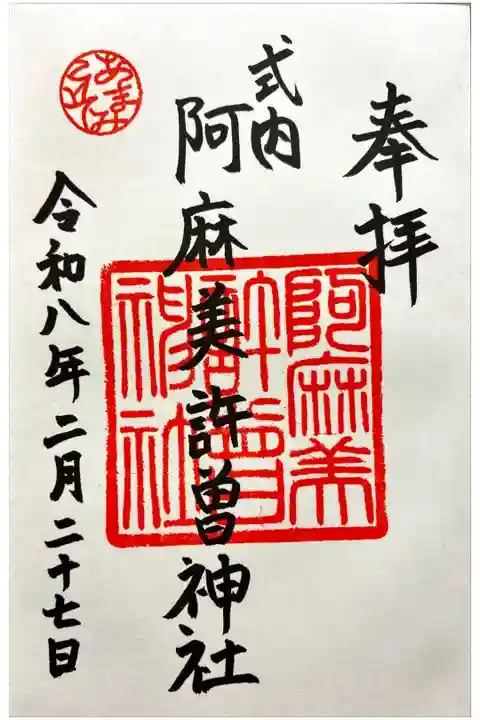 奉拝
式内
阿麻美許曽神社
令和八年二月二十七日
阿麻美
許曽
神社